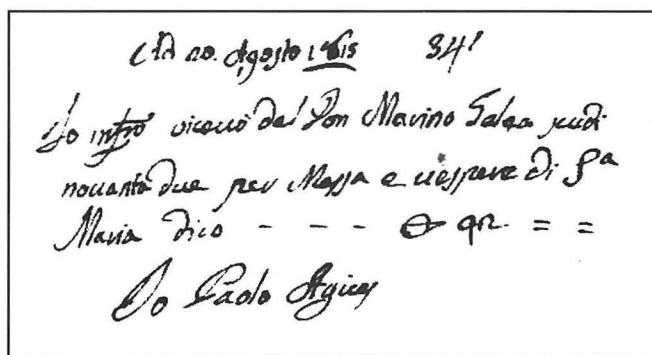 Ad 20. Agosto 1615 34'
Io infrō riceuò dal Don Marino Galea scudi
nouanta due per Messa e uespere di Sa
Maria dico - - - 92. = =
Io Paolo